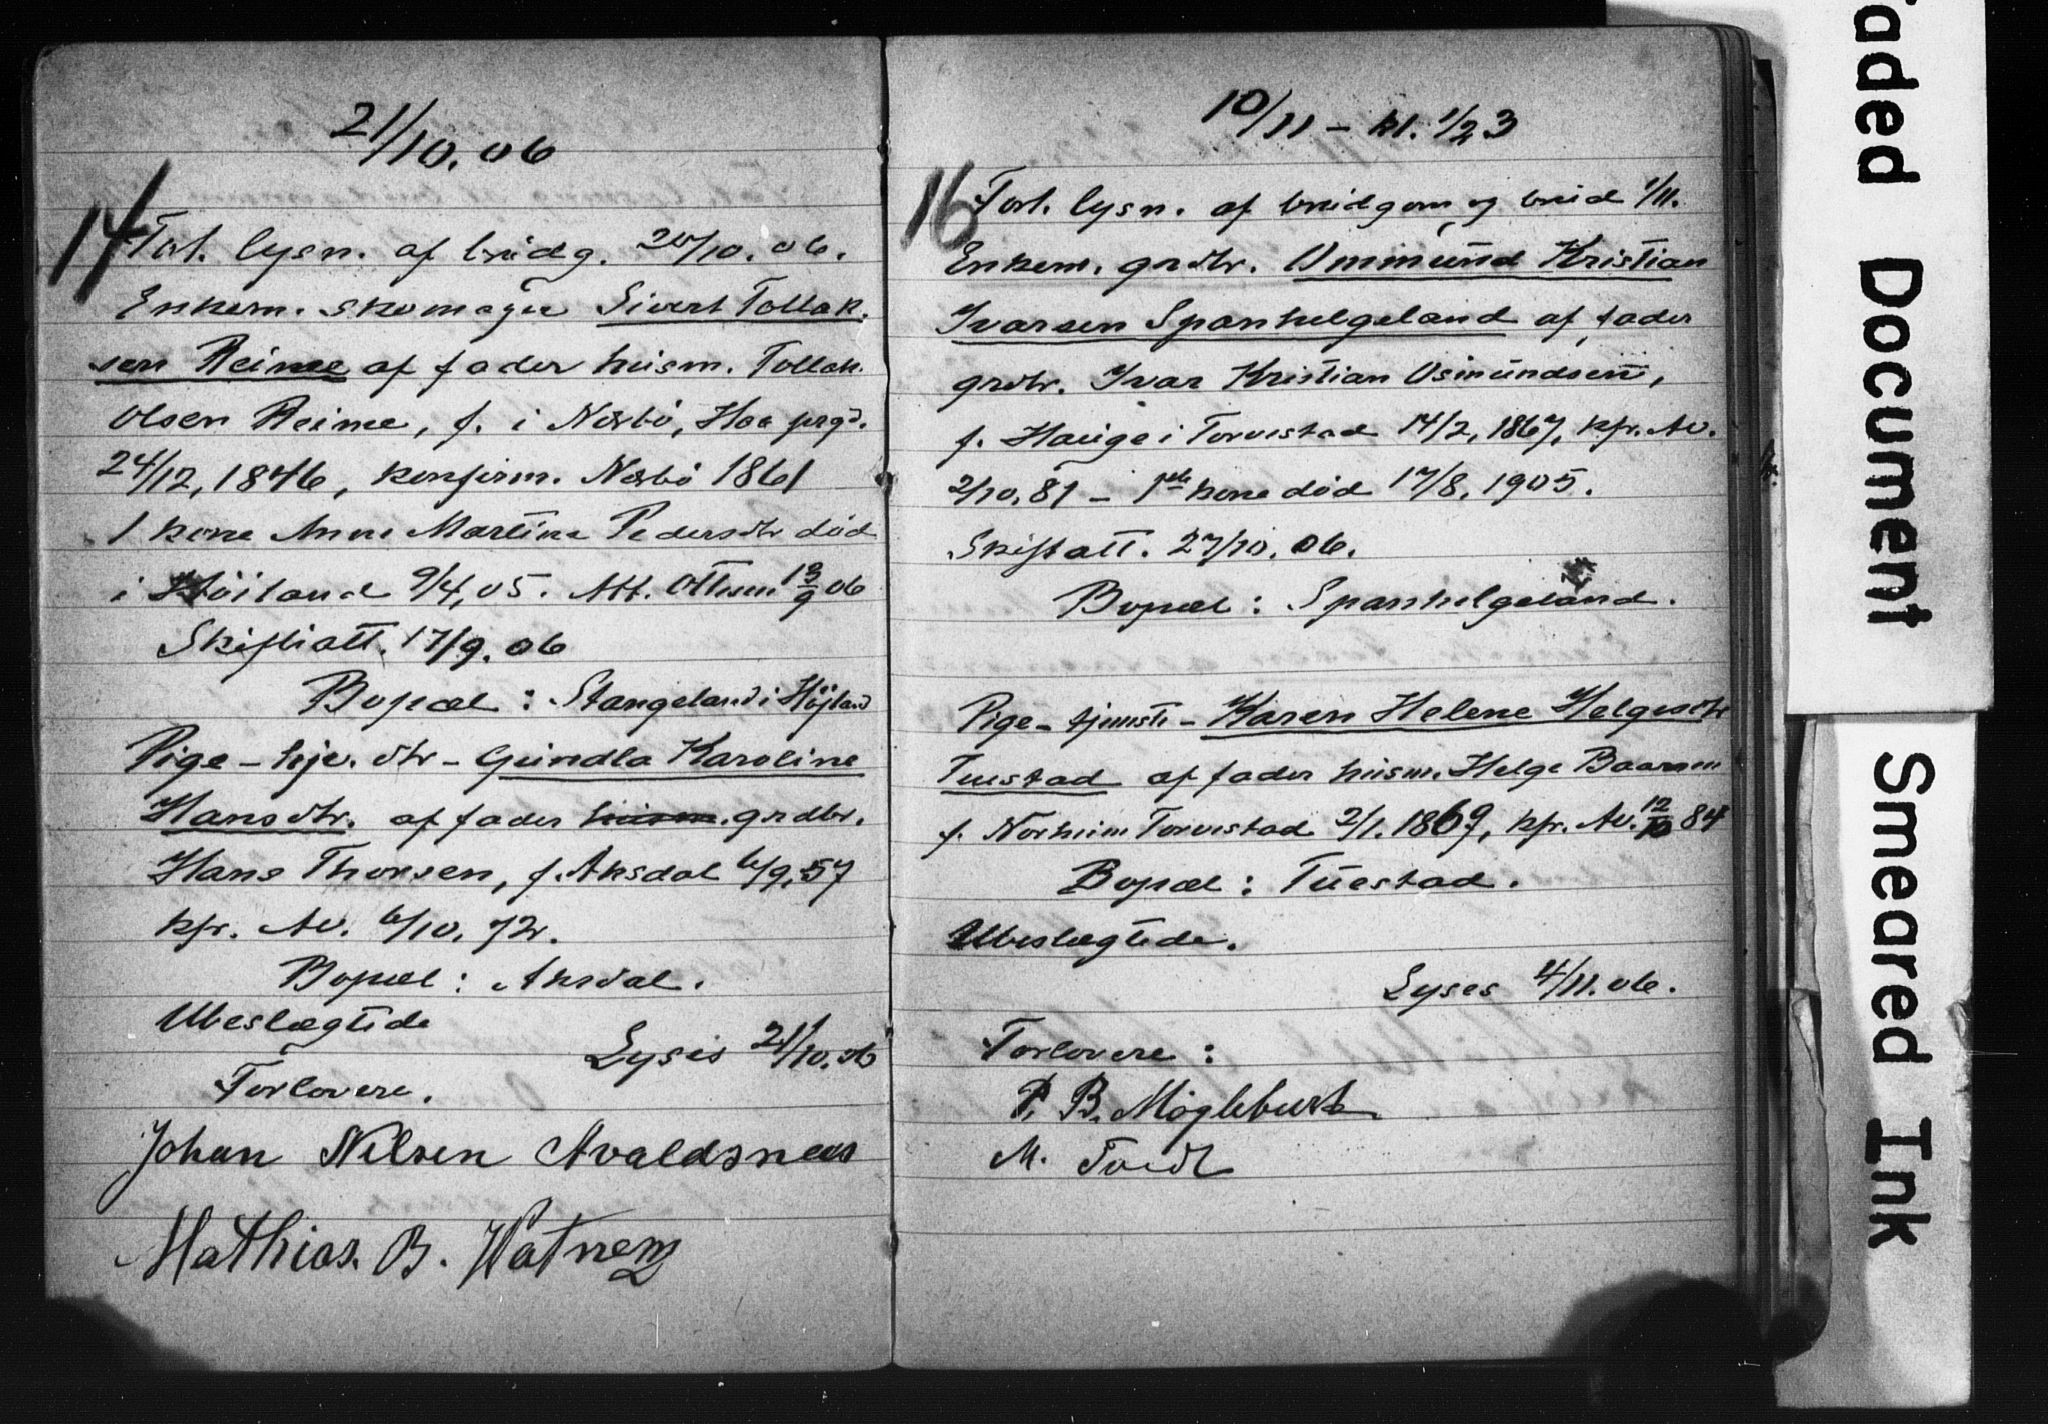 21/10.06
14 Forl. lysn. af brudg. 20/10.06.
Enkem. skomager Sivert Tollak-
sen Reime af fader husm. Tollak
Olsen Reime, f. i Nærbö, Haa prgd.
24/12, 1846, konfirm. Nærbö 1861
1 kone Anne Martine Pedersdtr död
i Höiland 9/4, 05. Att. 06
Skifteatt. 17/9. 06
Bopæl: Stangeland i Höjland
Pige - tje. dtr - Gundla Karoline
Hansdtr. af fader husm. grdbr.
Hans Thorsen, f. Aksdal 6/9, 57
kfr. Av. 6/10. 72.
Bopæl: Aksdal.
Ubeslægtede
Lysis 21/10.06
Forlovere.
Johan Nilsen Avaldsnes
Mathias. B. Vatnem
10/11 - kl. 1/2 3
16 Forl. lysn. af brudgom og brud 1/11.
Enkem. grdbr. Ommund Kristian
Ivarsen Spanhelgeland af fader
grdbr. Ivar Kristian Osmundsen,
f. Hauge i Torvestad 14/2, 1867, kfr. Av.
2/10, 81 - 1ste kone död 17/8, 1905.
Skiftatt. 27/10. 06.
Bopæl: Spanhelgeland.
Pige - tjeneste - Karen Helene Helgesdtr
Tuestad af fader husm. Helge Baarsen
f. Norheim Torvestad 2/1. 1869, kfr. Av. 12/10 84
Bopæl: Tuestad.
Ubeslægtede.
Lyses 4/11.06.
Forlovere:
P. B. Mögleburt
M.
Faded Document
Smeared Ink